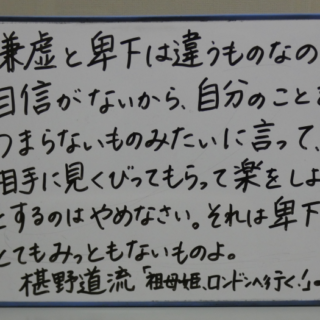 謙虚と卑下は違うものなの
自信がないから、自分のことを
つまらないものみたいに言って、
相手に見くびってもらって楽をしよ
とするのはやめなさい。それは卑下
とてもみっともないものよ。
椹野道流「祖母姫、ロンドンへ行く!」